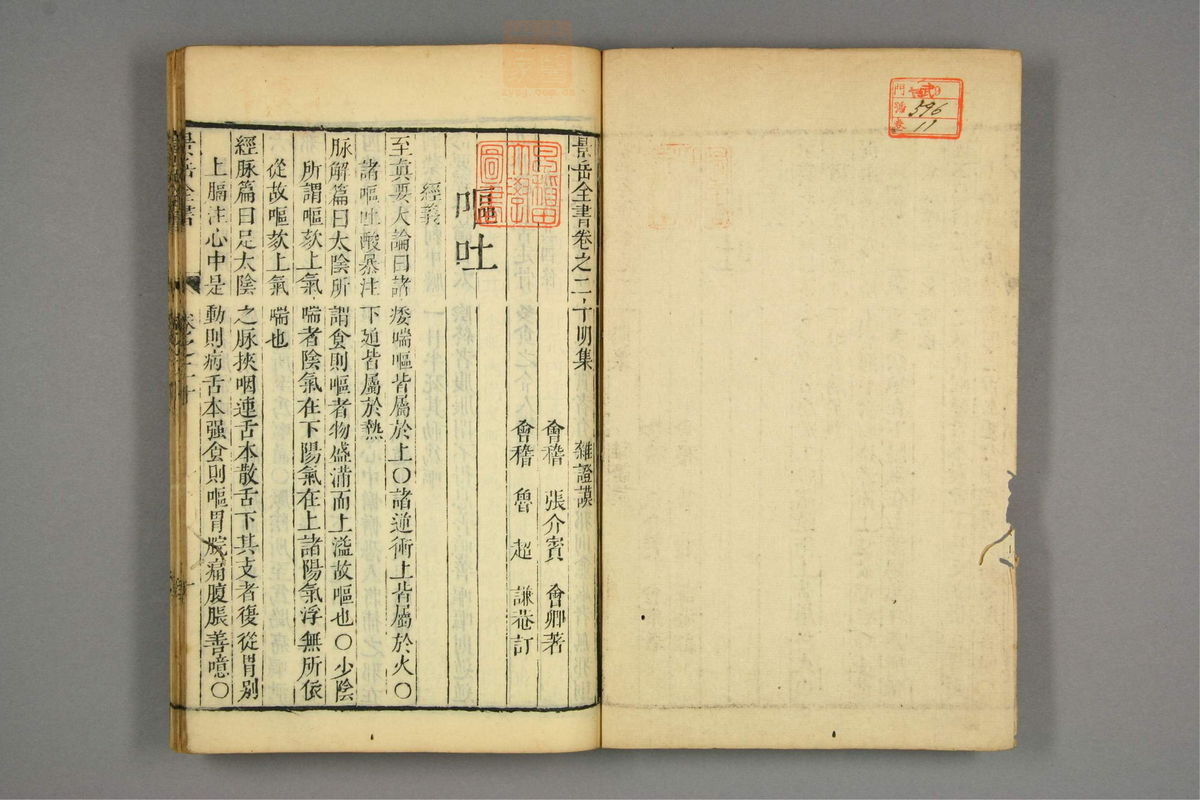 景岳全書卷之二十明集 雜證謨
會稽 張介賓 會卿著
會稽 魯超 謙菴訂
嘔吐
經義
至眞要大論曰諸痿喘嘔皆屬於上○諸逆衝上皆屬於火○
諸嘔吐酸暴注下廹皆屬於熱
脉解篇曰太陰所謂食則嘔者物盛滿而上溢故嘔也○少陰
所謂嘔欬上氣喘者陰氣在下陽氣在上諸陽氣浮無所依
從故嘔欬上氣喘也
經脉篇曰足太陰之脉挾咽連舌本散舌下其支者復從胃别
上膈注心中是動則病舌本强食則嘔胃脘痛腹脹善噫○
景岳全書
早稻田大學圖書
門
號 596
卷 11